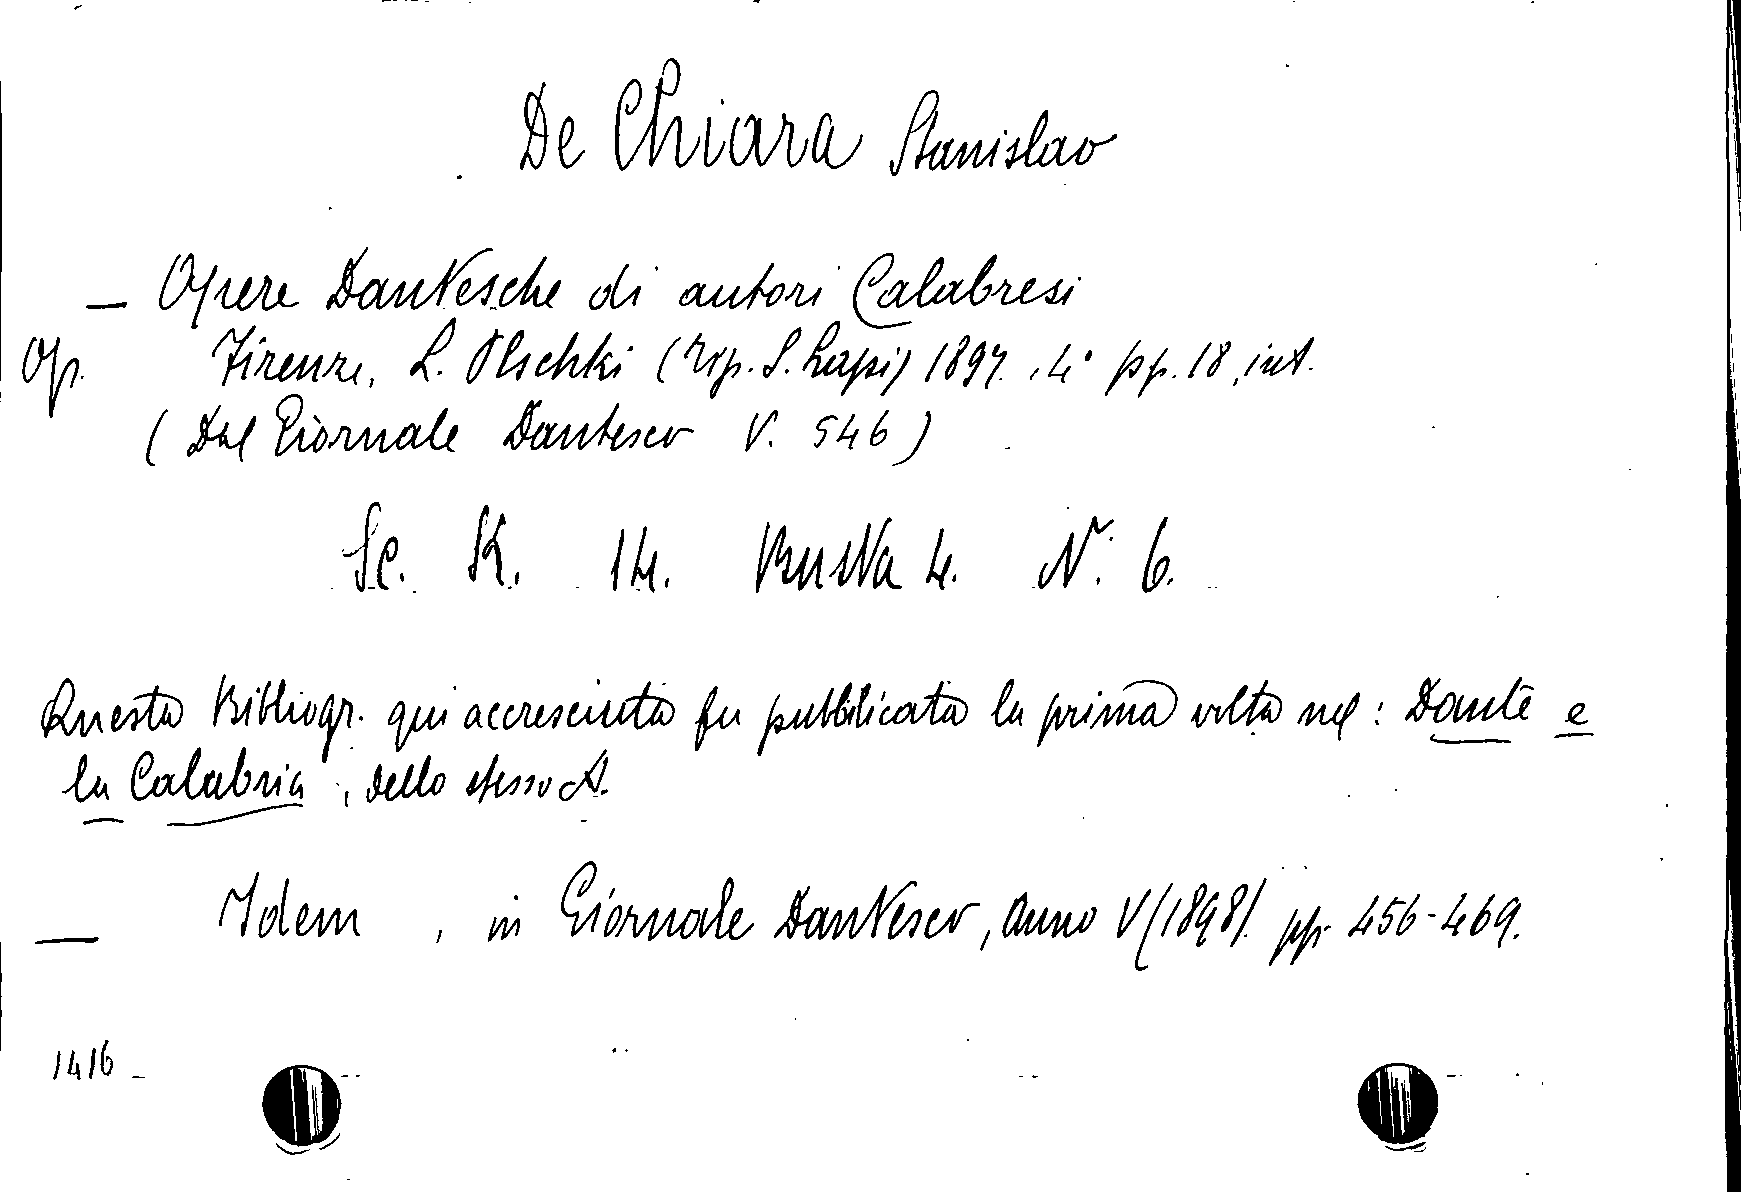 De Chiara Stanislao
— Opere Dantesche di autori Calabresi
Op. Firenze, L. Olschki (Tip. S. Lapi) 1897. 4° pp. 18, int.
(Dal Giornale Dantesco V. 546)
Sc. K. 14. Busta 4. N. 6.
Questa Bibliogr. qui accresciuta fu pubblicata la prima volta nel: Dante e
la Calabria, dello stesso A.
— Idem, in Giornale Dantesco, Anno V (1898). pp. 456-469.
1416